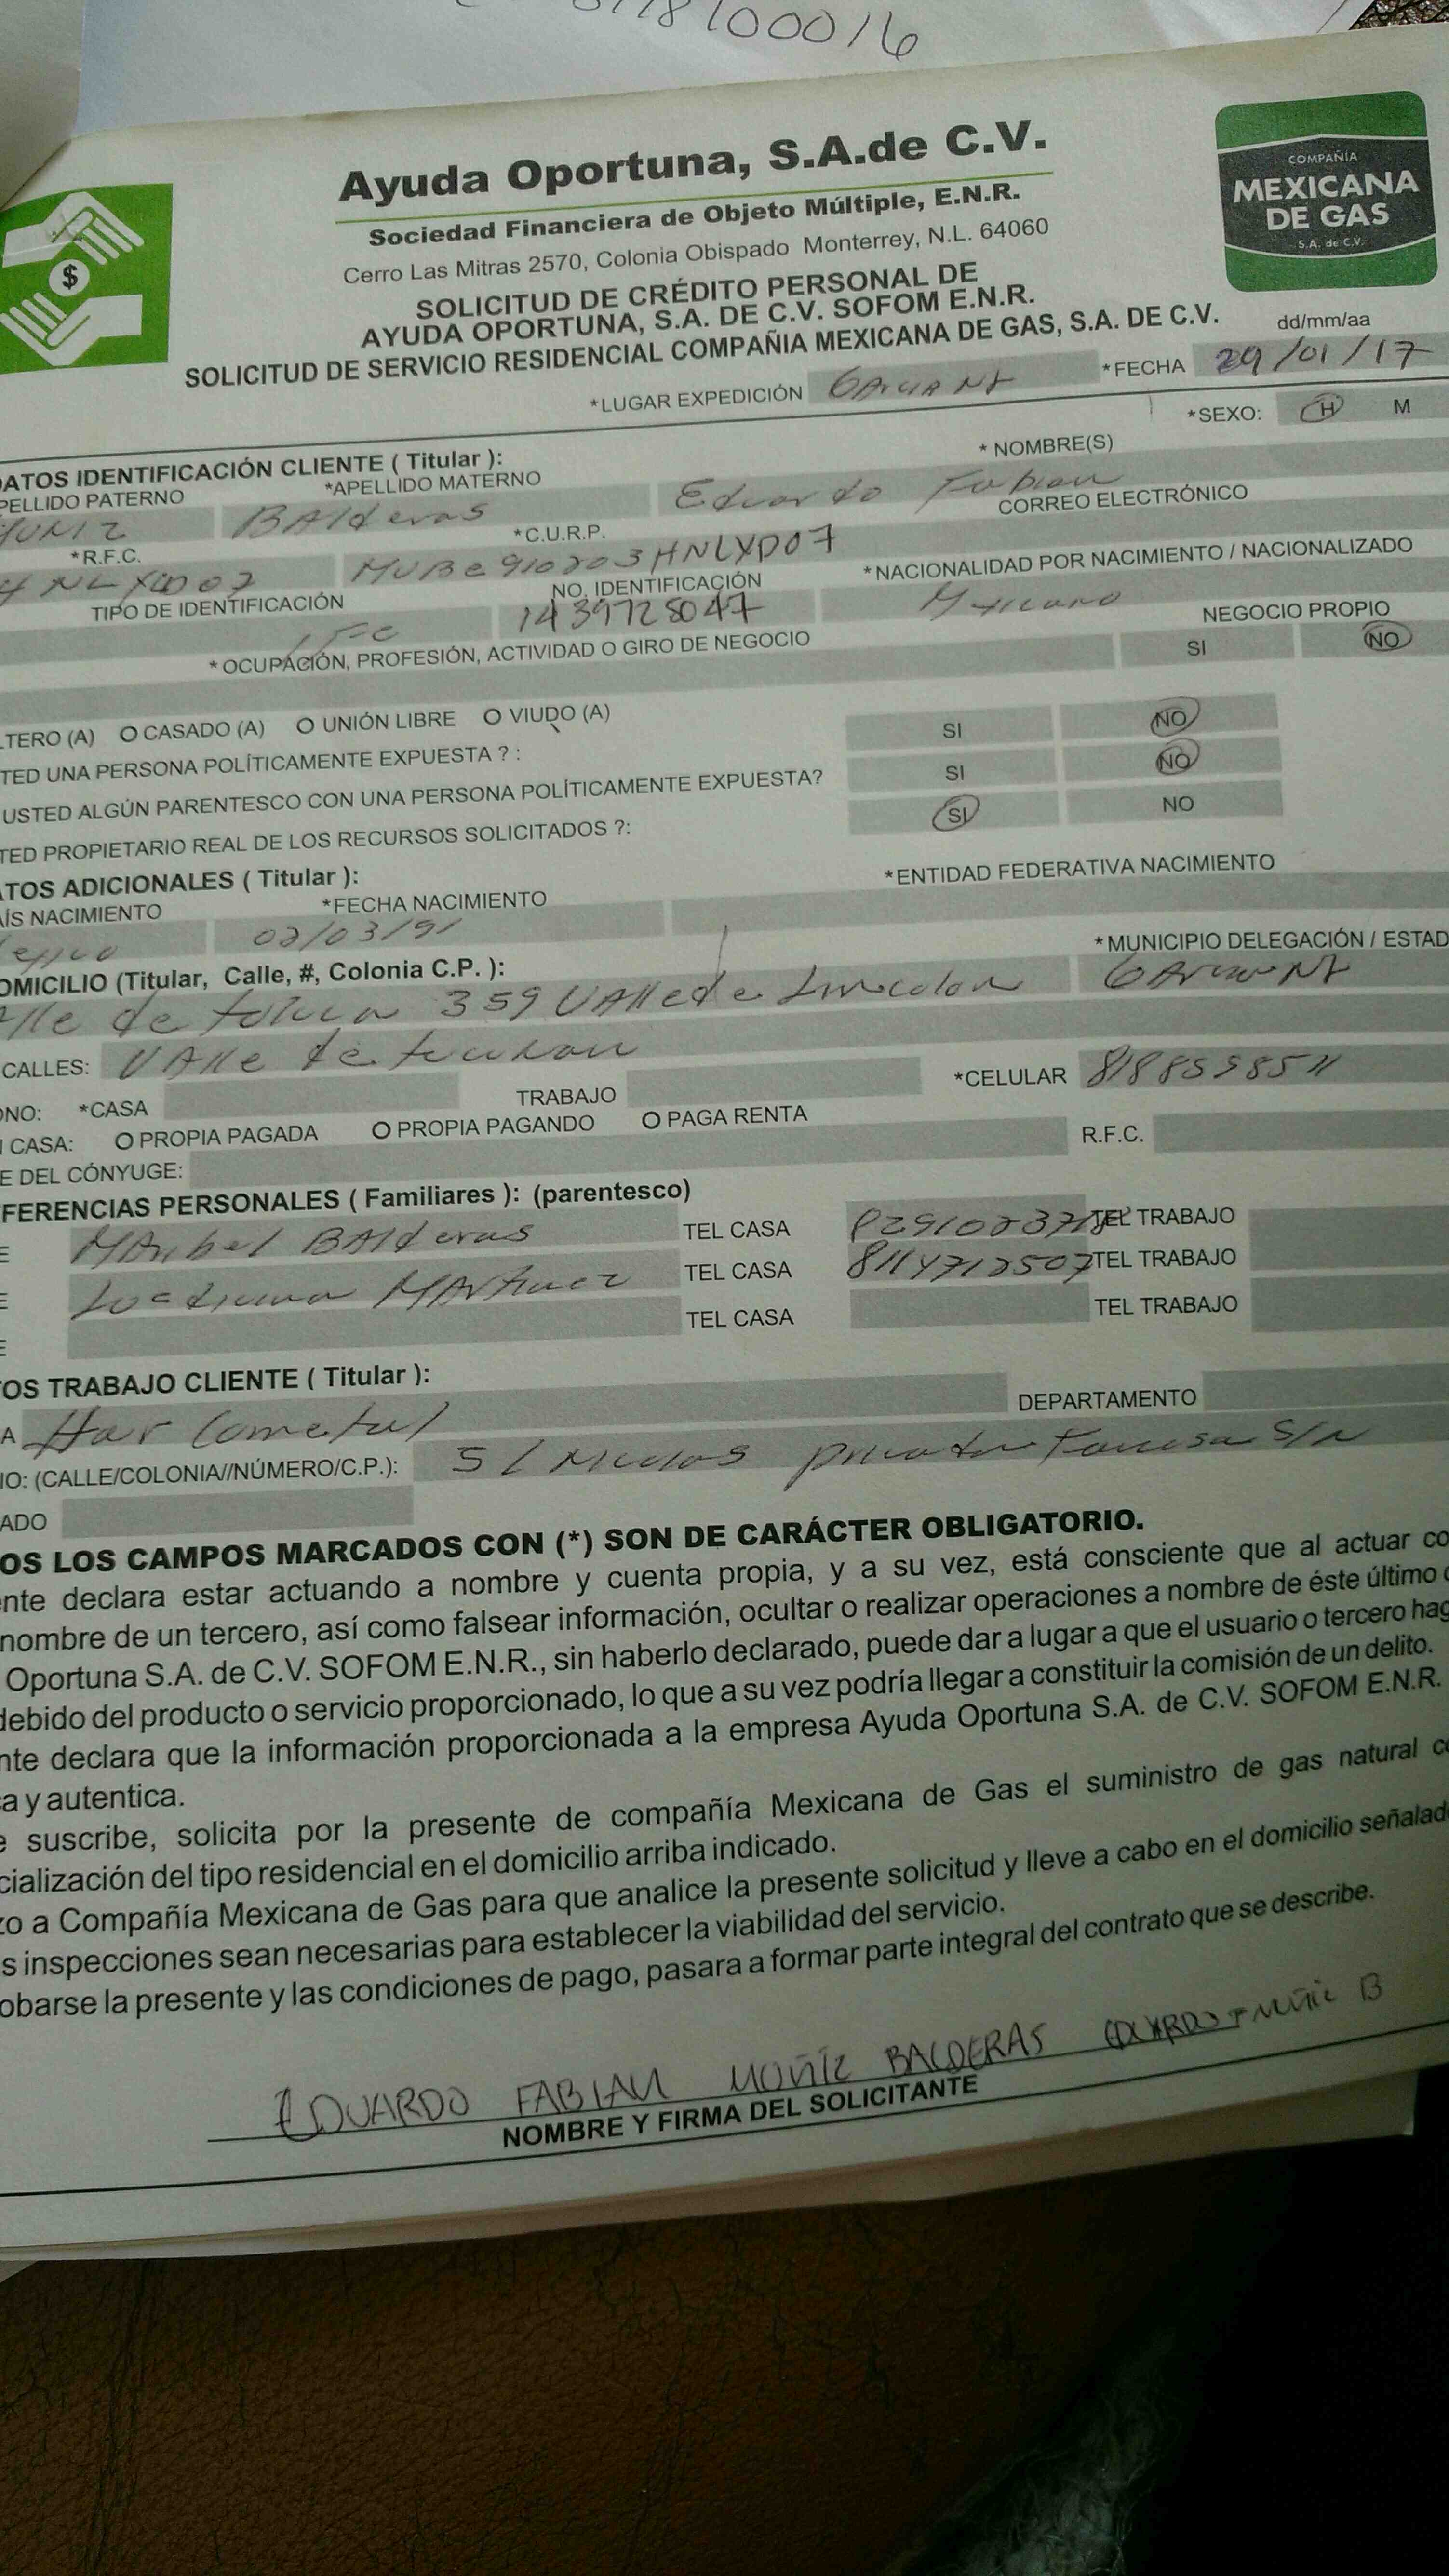 8100016
Ayuda Oportuna, S.A.de C.V.
Sociedad Financiera de Objeto Múltiple, E.N.R.
Cerro Las Mitras 2570, Colonia Obispado Monterrey, N.L. 64060
SOLICITUD DE CRÉDITO PERSONAL DE
AYUDA OPORTUNA, S.A. DE C.V. SOFOM E.N.R.
SOLICITUD DE SERVICIO RESIDENCIAL COMPAÑIA MEXICANA DE GAS, S.A. DE C.V.
COMPAÑIA
MEXICANA
DE GAS
S.A. de C.V.
$
dd/mm/aa
*LUGAR EXPEDICIÓN *FECHA 29/01/17
*SEXO: H M
DATOS IDENTIFICACIÓN CLIENTE ( Titular ):
PELLIDO PATERNO *APELLIDO MATERNO * NOMBRE(S)
BAlderas Eduardo Fabian
*R.F.C. *C.U.R.P. CORREO ELECTRÓNICO
MUBe910203HNLXD07
TIPO DE IDENTIFICACIÓN NO. IDENTIFICACIÓN *NACIONALIDAD POR NACIMIENTO / NACIONALIZADO
IFe 1439728047 Mexicano
* OCUPACIÓN, PROFESIÓN, ACTIVIDAD O GIRO DE NEGOCIO NEGOCIO PROPIO
SI NO
LTERO (A) O CASADO (A) O UNIÓN LIBRE O VIUDO (A)
TED UNA PERSONA POLÍTICAMENTE EXPUESTA ? : SI NO
USTED ALGÚN PARENTESCO CON UNA PERSONA POLÍTICAMENTE EXPUESTA? SI NO
TED PROPIETARIO REAL DE LOS RECURSOS SOLICITADOS ?: SI NO
ATOS ADICIONALES ( Titular ):
AÍS NACIMIENTO *FECHA NACIMIENTO *ENTIDAD FEDERATIVA NACIMIENTO
02/03/91
OMICILIO (Titular, Calle, #, Colonia C.P. ): *MUNICIPIO DELEGACIÓN / ESTAD
lle de toluca 359 VAlle de Lincoln
CALLES: VAlle de
ONO: *CASA TRABAJO *CELULAR
N CASA: O PROPIA PAGADA O PROPIA PAGANDO O PAGA RENTA
E DEL CÓNYUGE: R.F.C.
FERENCIAS PERSONALES ( Familiares ): (parentesco)
E MAribel BAlderas TEL CASA TEL TRABAJO
E MArtinez TEL CASA 8114712507 TEL TRABAJO
E TEL CASA TEL TRABAJO
OS TRABAJO CLIENTE ( Titular ):
A DEPARTAMENTO
IO: (CALLE/COLONIA//NÚMERO/C.P.): S/N
ADO
OS LOS CAMPOS MARCADOS CON (*) SON DE CARÁCTER OBLIGATORIO.
ente declara estar actuando a nombre y cuenta propia, y a su vez, está consciente que al actuar co
nombre de un tercero, así como falsear información, ocultar o realizar operaciones a nombre de éste último
Oportuna S.A. de C.V. SOFOM E.N.R., sin haberlo declarado, puede dar a lugar a que el usuario o tercero hag
debido del producto o servicio proporcionado, lo que a su vez podría llegar a constituir la comisión de un delito.
nte declara que la información proporcionada a la empresa Ayuda Oportuna S.A. de C.V. SOFOM E.N.R.
ca y autentica.
e suscribe, solicita por la presente de compañía Mexicana de Gas el suministro de gas natural co
cialización del tipo residencial en el domicilio arriba indicado.
zo a Compañía Mexicana de Gas para que analice la presente solicitud y lleve a cabo en el domicilio señalad
s inspecciones sean necesarias para establecer la viabilidad del servicio.
obarse la presente y las condiciones de pago, pasara a formar parte integral del contrato que se describe.
EDUARDO FABIAN MUÑIZ BALDERAS EDUARDO F MUÑIZ B
NOMBRE Y FIRMA DEL SOLICITANTE